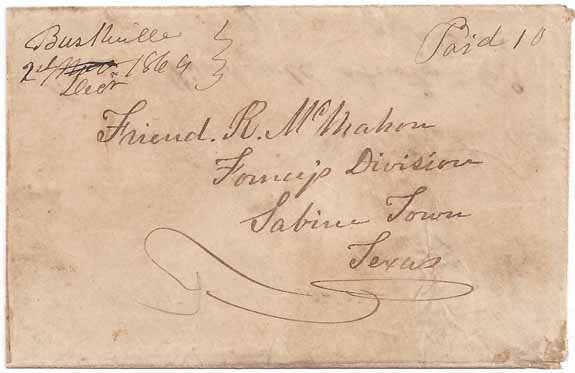 Burkville
2d Decr 1864
Paid 10
Friend. R. McMahon
Forney's Division
Sabine Town
Texas